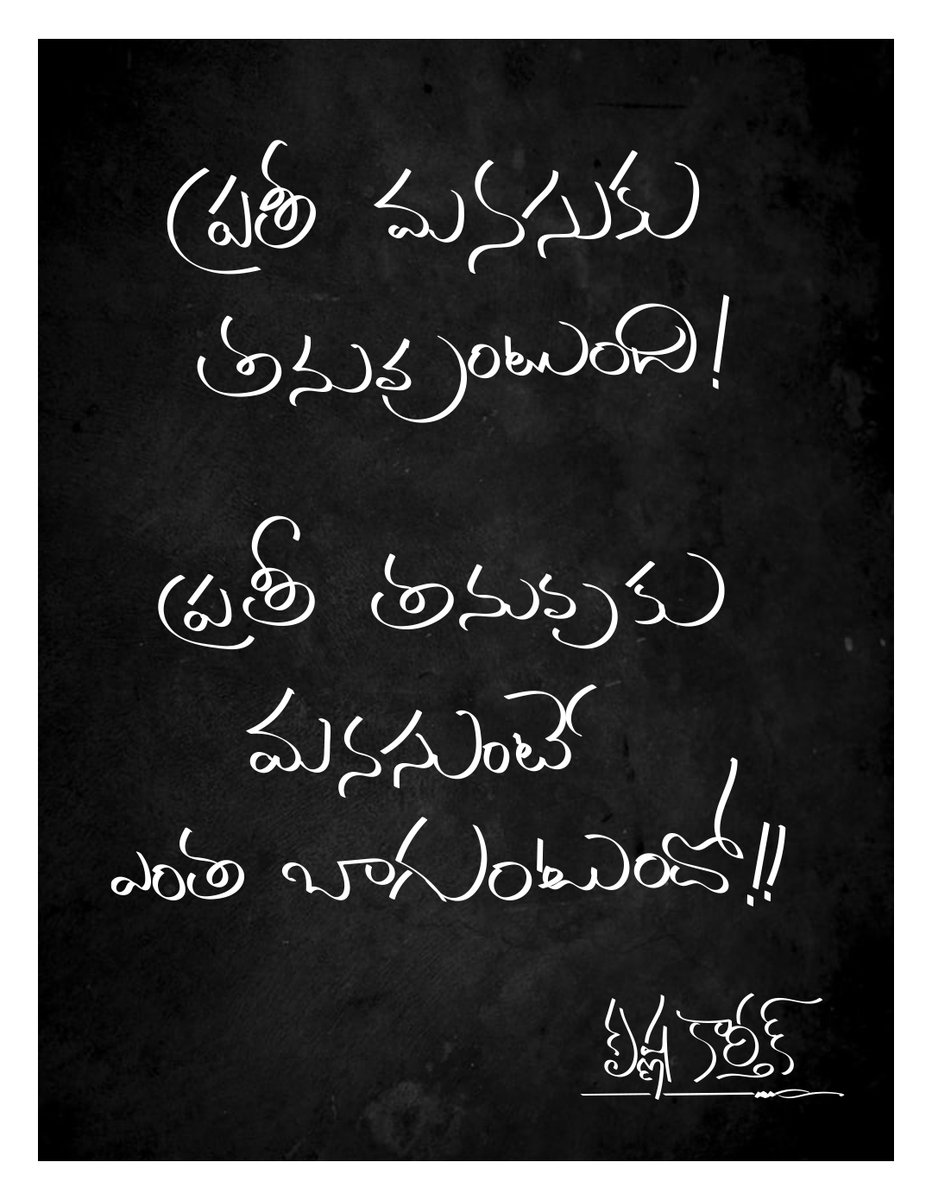 ప్రతీ మనసుకు
తనువుంటుంది!
ప్రతీ తనువుకు
మనసుంటే
ఎంత బాగుంటుందో!!
కార్తీక్